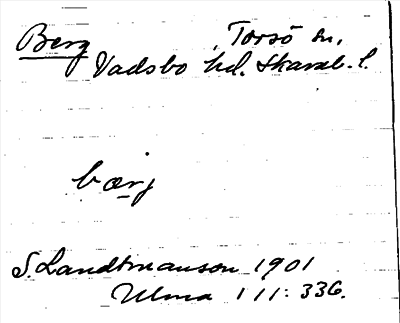 Berg Torsö sn,
Vadsbo hd. Skarab. l.
bærj
S. Landtmanson 1901
Ulma 111:336.